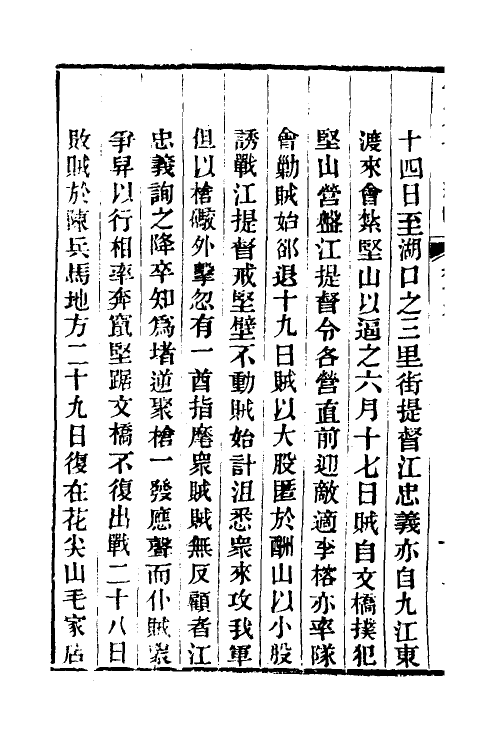 十四日至湖口之三里街提督江忠義亦自九江東
渡來會紥堅山以逼之六月十七日賊自文橋撲犯
堅山營盤江提督令各營直前迎敵適李榕亦率隊
會勦賊始郤退十九日賊以大股匿於酬山以小股
誘戰江提督戒堅壁不動賊始計沮悉衆來攻我軍
但以槍礮外擊忽有一酋指麾衆賊賊無反顧者江
忠義詢之降卒知爲堵逆聚槍一發應聲而仆賊衆
爭舁以行相率奔竄堅踞文橋不復出戰二十八日
敗賊於陳兵馬地方二十九日復在花尖山毛家店